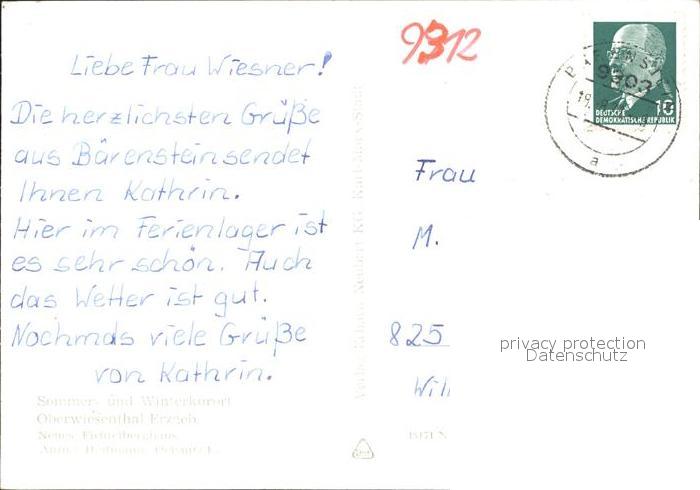 9312
DEUTSCHE
DEMOKRATISCHE REPUBLIK
10
9303
19.
a
Liebe Frau Wiesner!
Die herzlichsten Grüße
aus Bärenstein sendet
Ihnen Kathrin.
Hier im Ferienlager ist
es sehr schön. Auch
das Wetter ist gut.
Nochmals viele Grüße
von Kathrin.
Sommer- und Winterkurort
Oberwiesenthal Erzgeb.
Neues Fichtelberghaus
Frau
M.
825
Will
privacy protection
Datenschutz